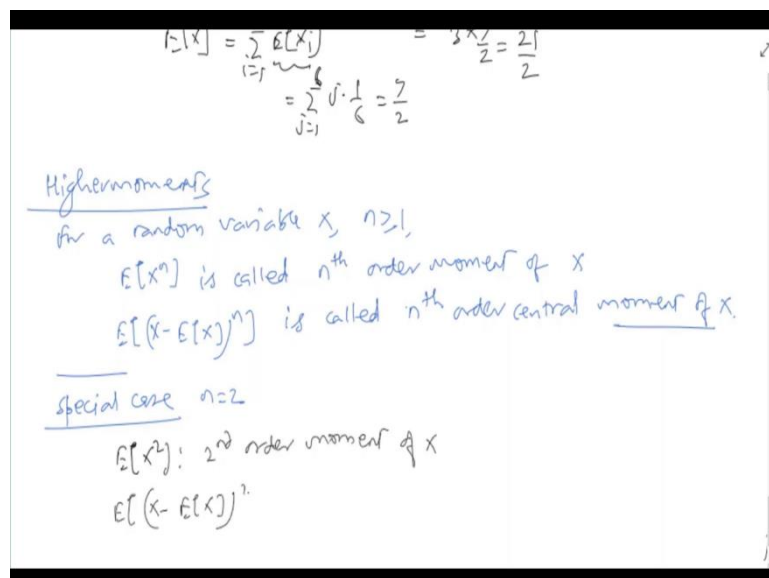 E[X] = Σ_{i=1} E[X_i] = 3×7/2 = 21/2
= Σ_{j=1}^{6} j · 1/6 = 7/2
Higher moments
for a random variable X, n≥1,
E[X^n] is called n^th order moment of X
E[(X-E[X])^n] is called n^th order central moment of X.
special case n=2
E[X^2]: 2^nd order moment of X
E[(X-E[X])^2